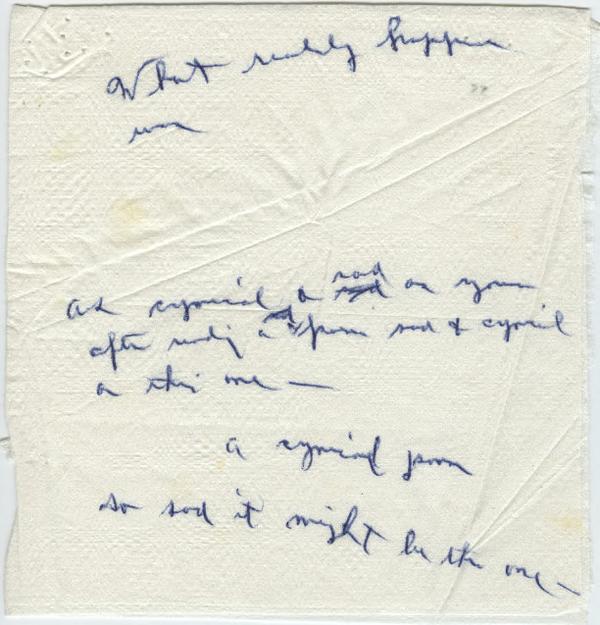 What really happen
was
as cynical sad as
after reading a poem sad & cynical
as this one —
a cynical poem
so sad it might be this one —